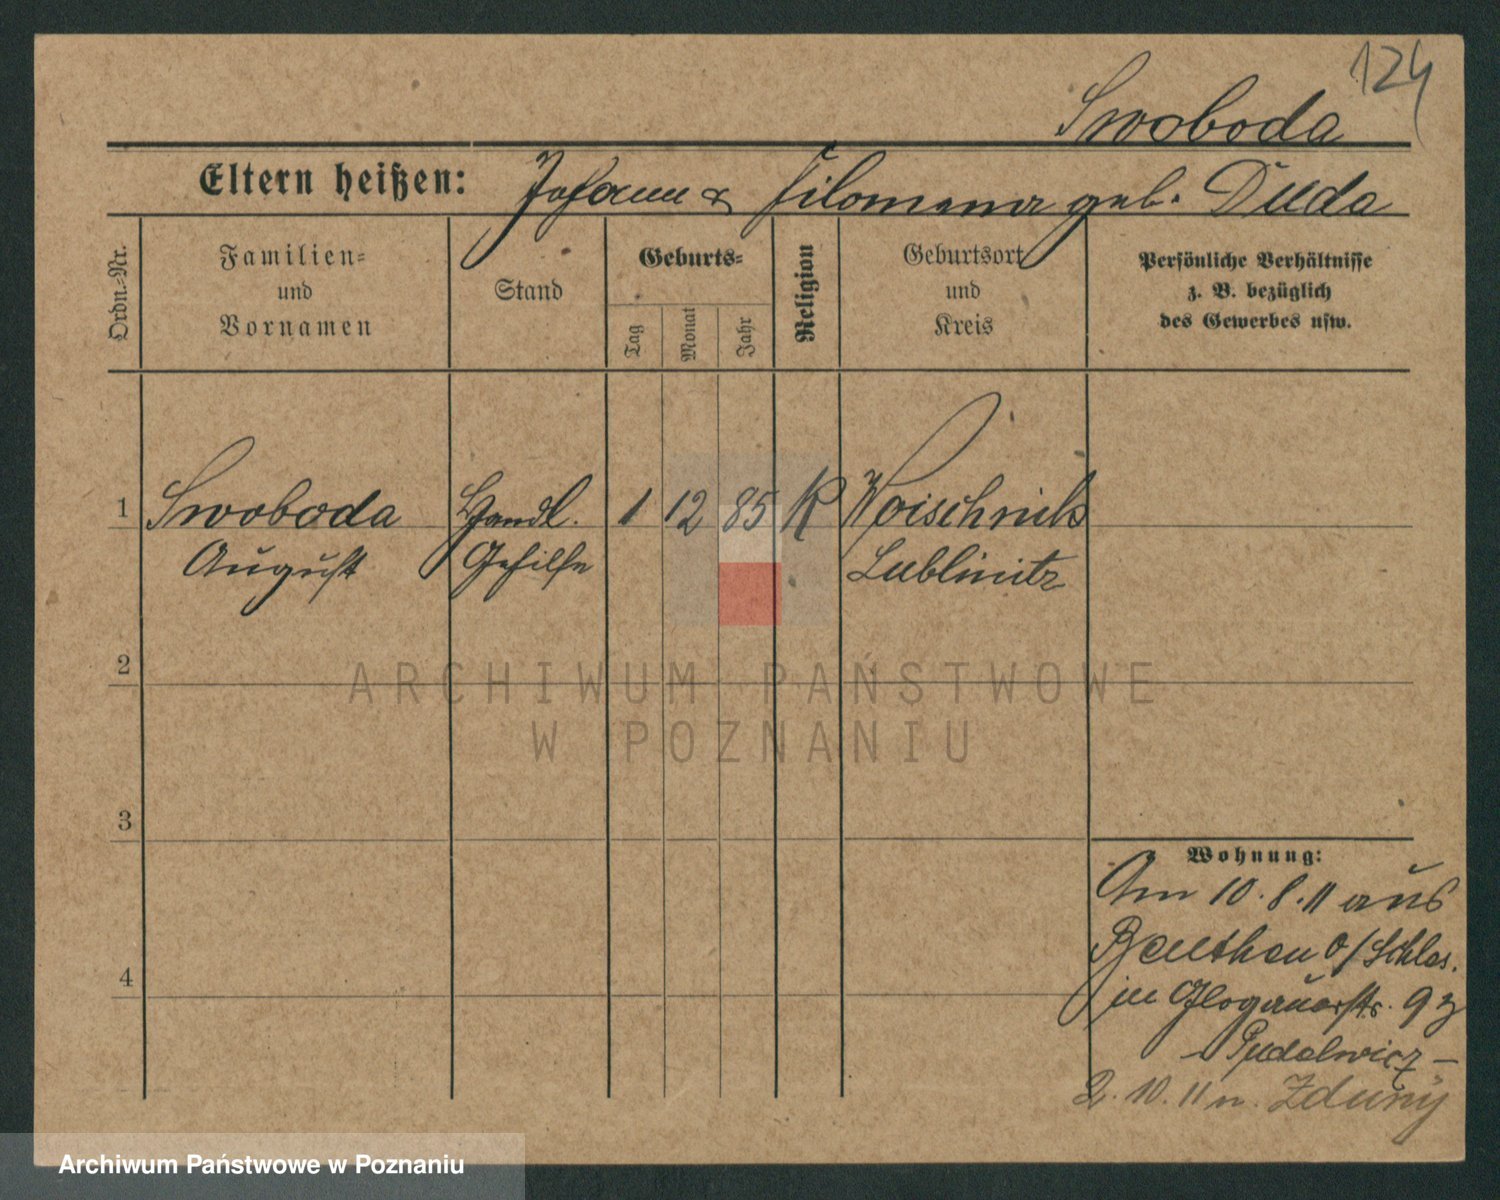 124
Swoboda
Eltern heißen: Johann & Filomena geb. Duda
Ordn.-Nr.
Familien-
und
Vornamen
Stand
Geburts-
Tag
Monat
Jahr
Religion
Geburtsort
und
Kreis
Persönliche Verhältnisse
z. B. bezüglich
des Gewerbes usw.
1 Swoboda Handl. 1 12 85 K Woischnik
August Gehilfe Lublinitz
2
3
4
Wohnung:
Am 10.8.11 aus
Beuthen O/Schles.
in Glogauerstr. 93
Pudelwicz –
2.10.11 n. Zduny
ARCHIWUM PAŃSTWOWE
W POZNANIU
Archiwum Państwowe w Poznaniu